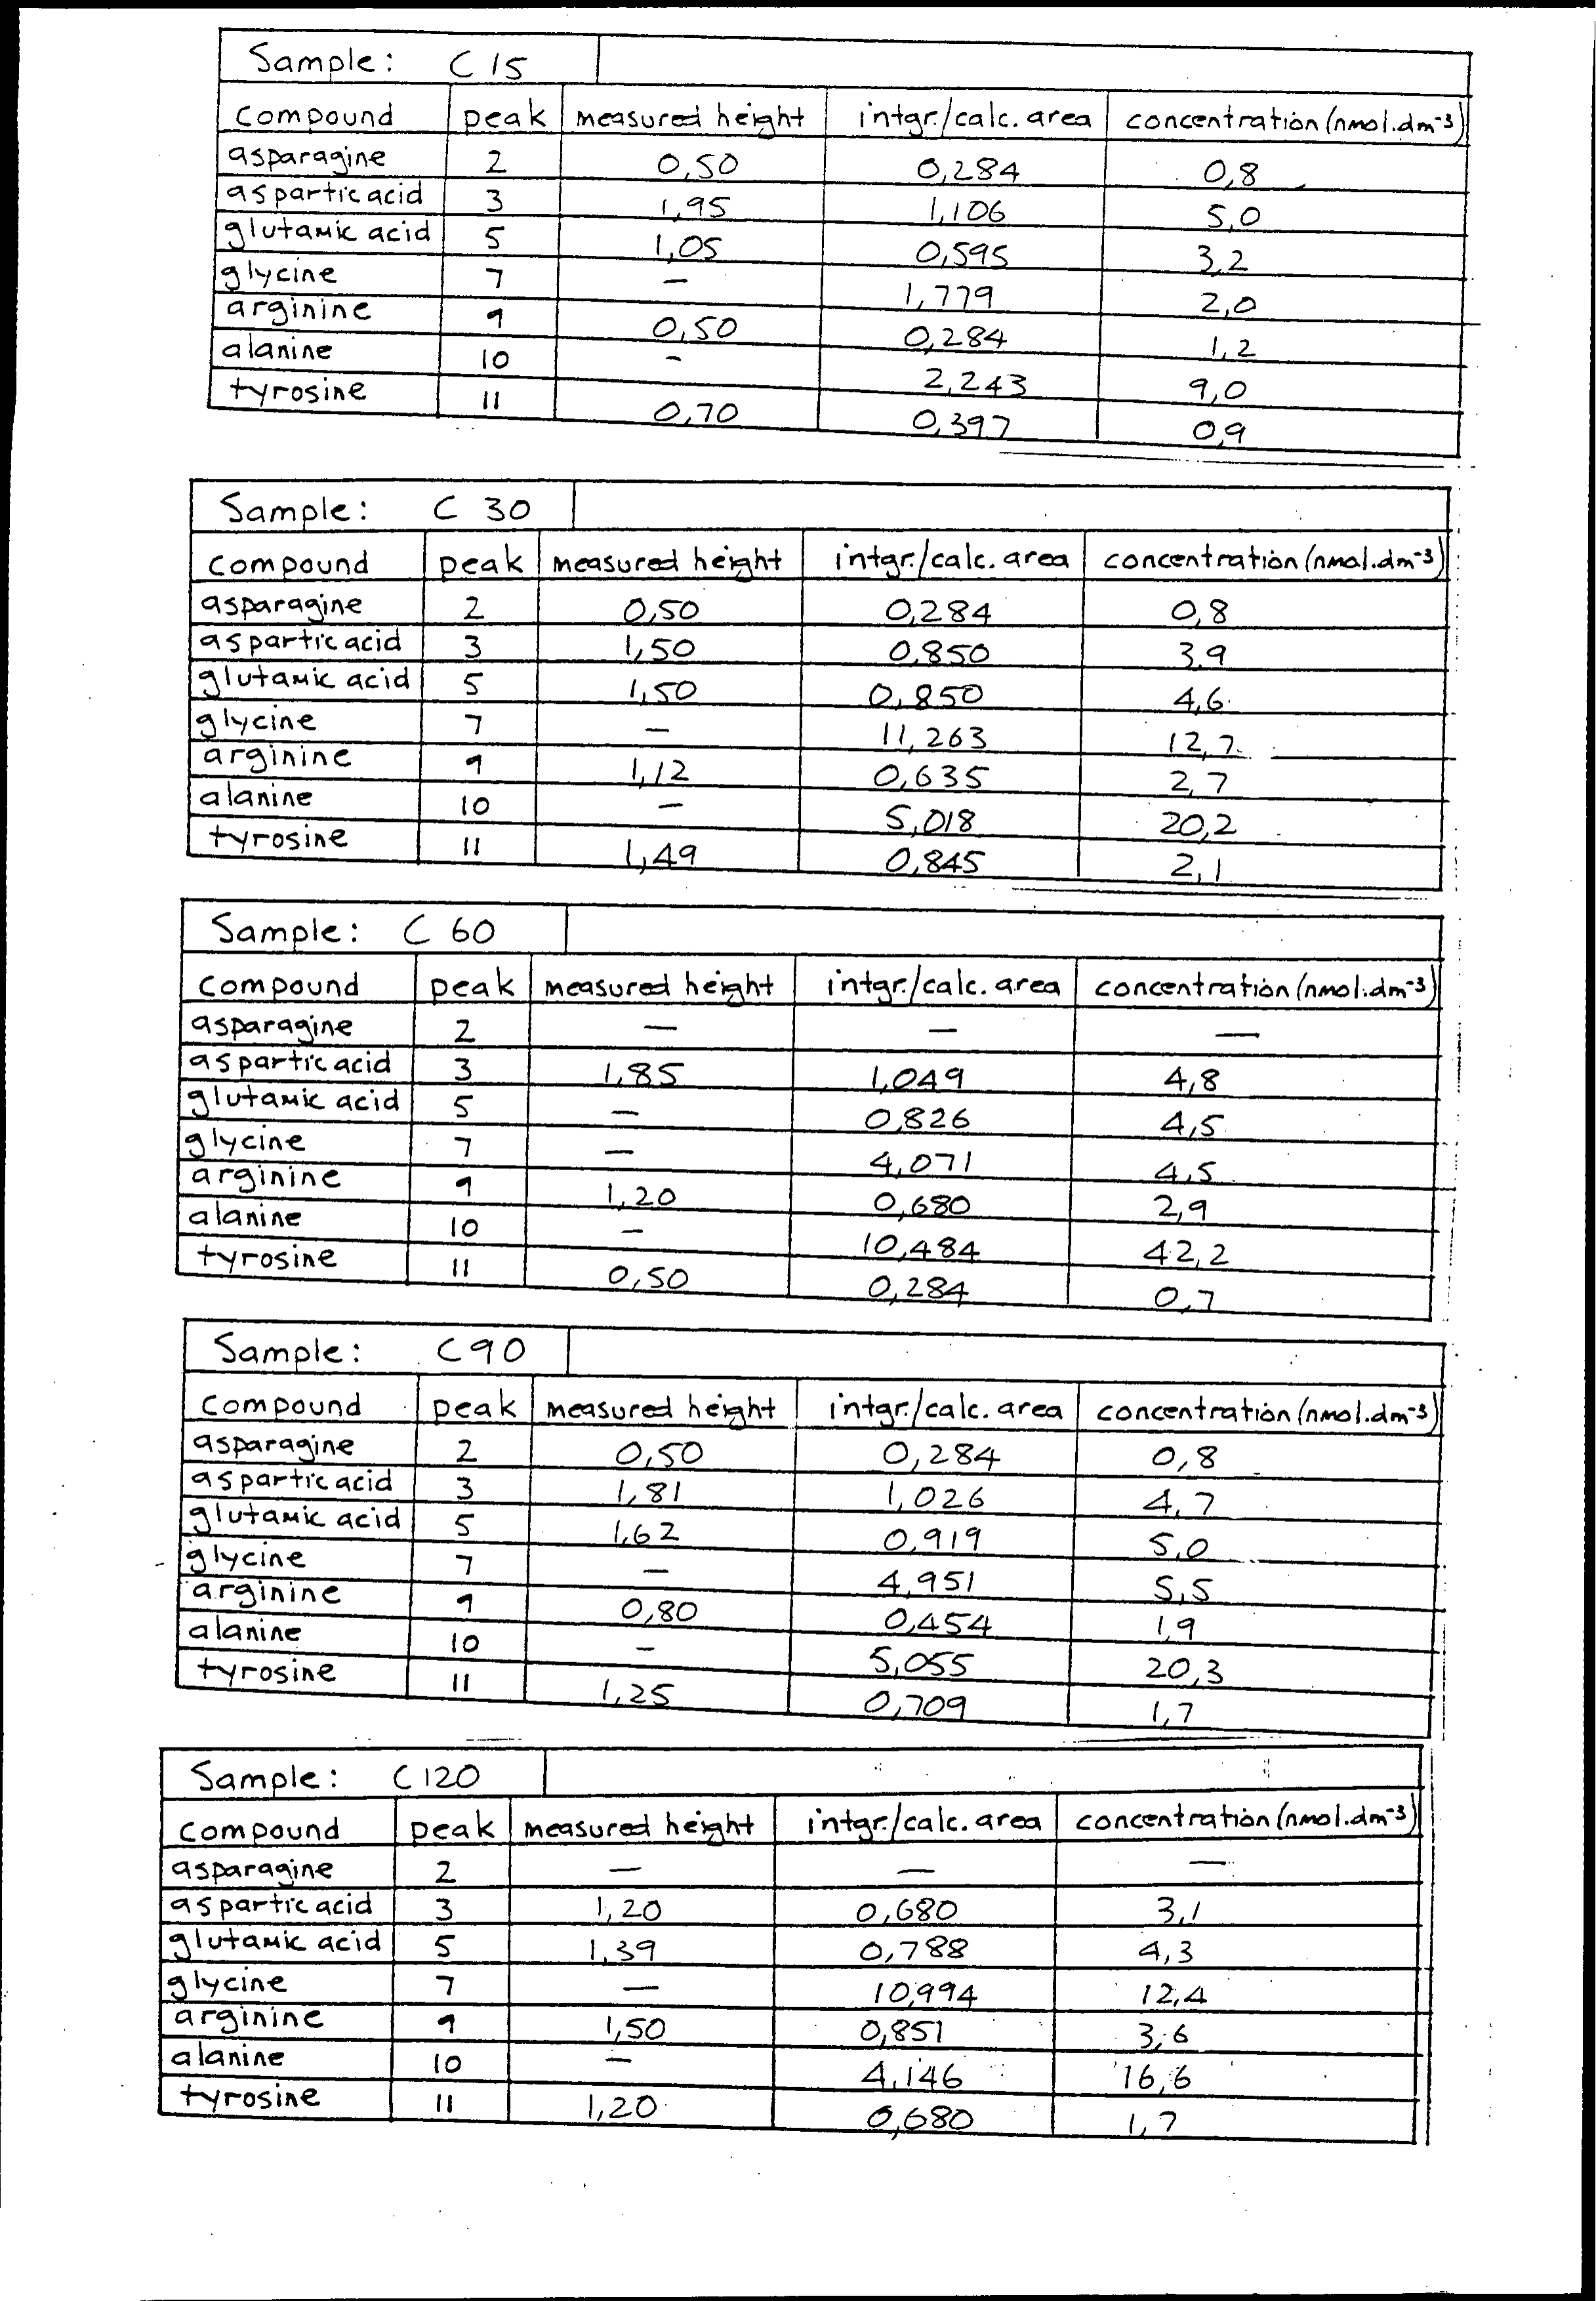 Sample: C 15
compound peak measured height intgr./calc. area concentration (nmol.dm⁻³)
asparagine 2 0,50 0,284 0,8
aspartic acid 3 1,95 1,106 5,0
glutamic acid 5 1,05 0,595 3,2
glycine 7 – 1,779 2,0
arginine 9 0,50 0,284 1,2
alanine 10 – 2,243 9,0
tyrosine 11 0,70 0,397 0,9
Sample: C 30
compound peak measured height intgr./calc. area concentration (nmol.dm⁻³)
asparagine 2 0,50 0,284 0,8
aspartic acid 3 1,50 0,850 3,9
glutamic acid 5 1,50 0,850 4,6
glycine 7 – 11,263 12,7
arginine 9 1,12 0,635 2,7
alanine 10 – 5,018 20,2
tyrosine 11 1,49 0,845 2,1
Sample: C 60
compound peak measured height intgr./calc. area concentration (nmol.dm⁻³)
asparagine 2 – – –
aspartic acid 3 1,85 1,049 4,8
glutamic acid 5 – 0,826 4,5
glycine 7 – 4,071 4,5
arginine 9 1,20 0,680 2,9
alanine 10 – 10,484 42,2
tyrosine 11 0,50 0,284 0,7
Sample: C 90
compound peak measured height intgr./calc. area concentration (nmol.dm⁻³)
asparagine 2 0,50 0,284 0,8
aspartic acid 3 1,81 1,026 4,7
glutamic acid 5 1,62 0,919 5,0
glycine 7 – 4,951 5,5
arginine 9 0,80 0,454 1,9
alanine 10 – 5,055 20,3
tyrosine 11 1,25 0,709 1,7
Sample: C 120
compound peak measured height intgr./calc. area concentration (nmol.dm⁻³)
asparagine 2 – – –
aspartic acid 3 1,20 0,680 3,1
glutamic acid 5 1,39 0,788 4,3
glycine 7 – 10,994 12,4
arginine 9 1,50 0,851 3,6
alanine 10 – 4,146 16,6
tyrosine 11 1,20 0,680 1,7